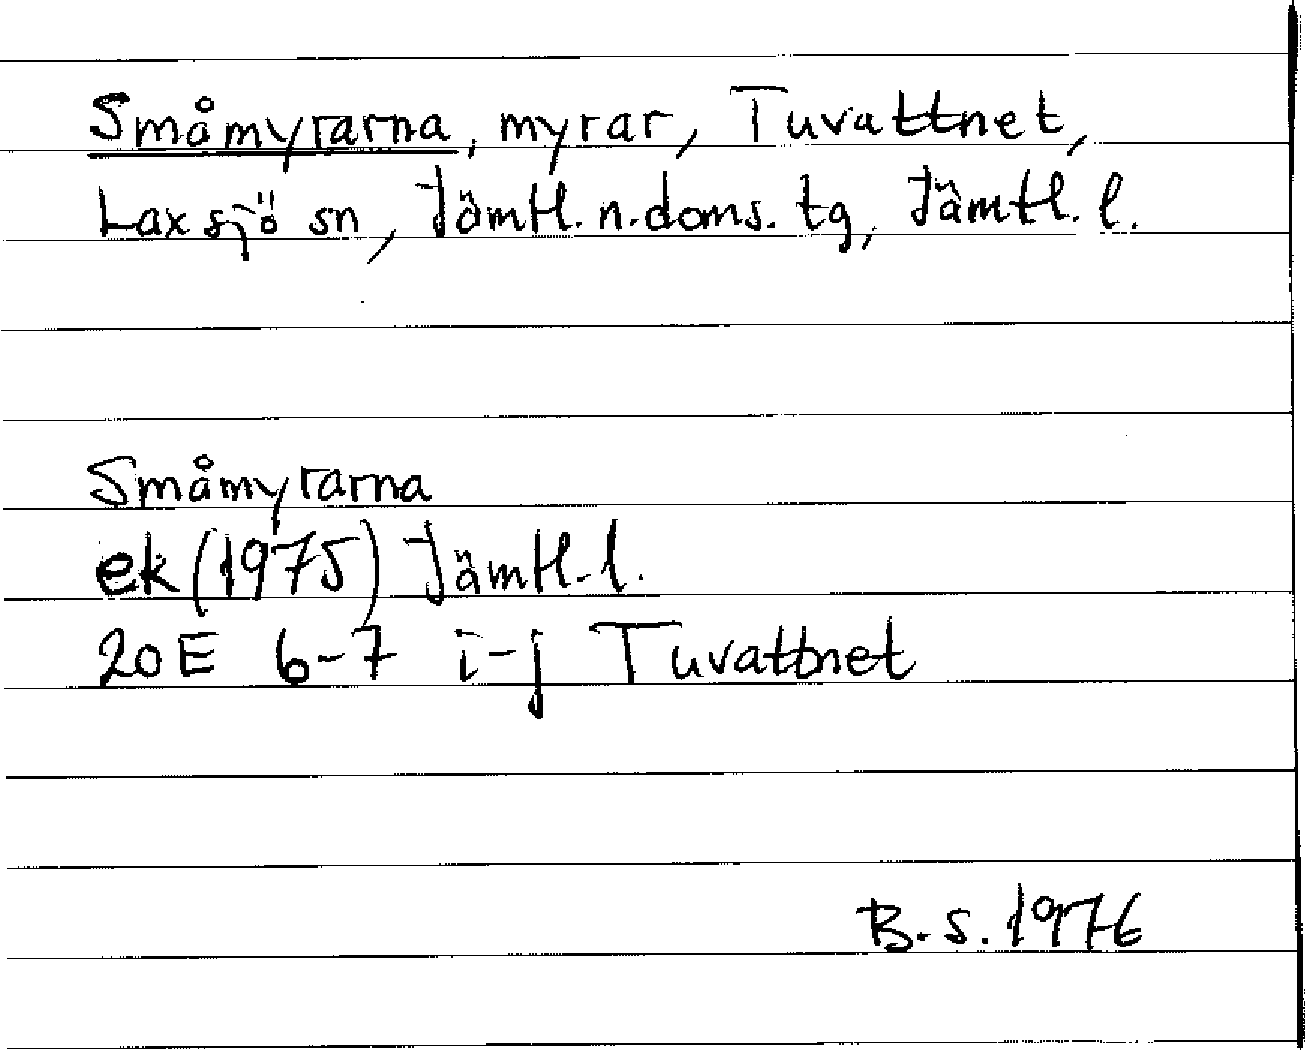 Småmyrarna, myrar, Tuvattnet,
Laxsjö sn, Jämtl. n. doms. tg, Jämtl. l.
Småmyrarna
ek (1975) Jämtl. l.
20E 6-7 i-j Tuvattnet
B.S. 1976